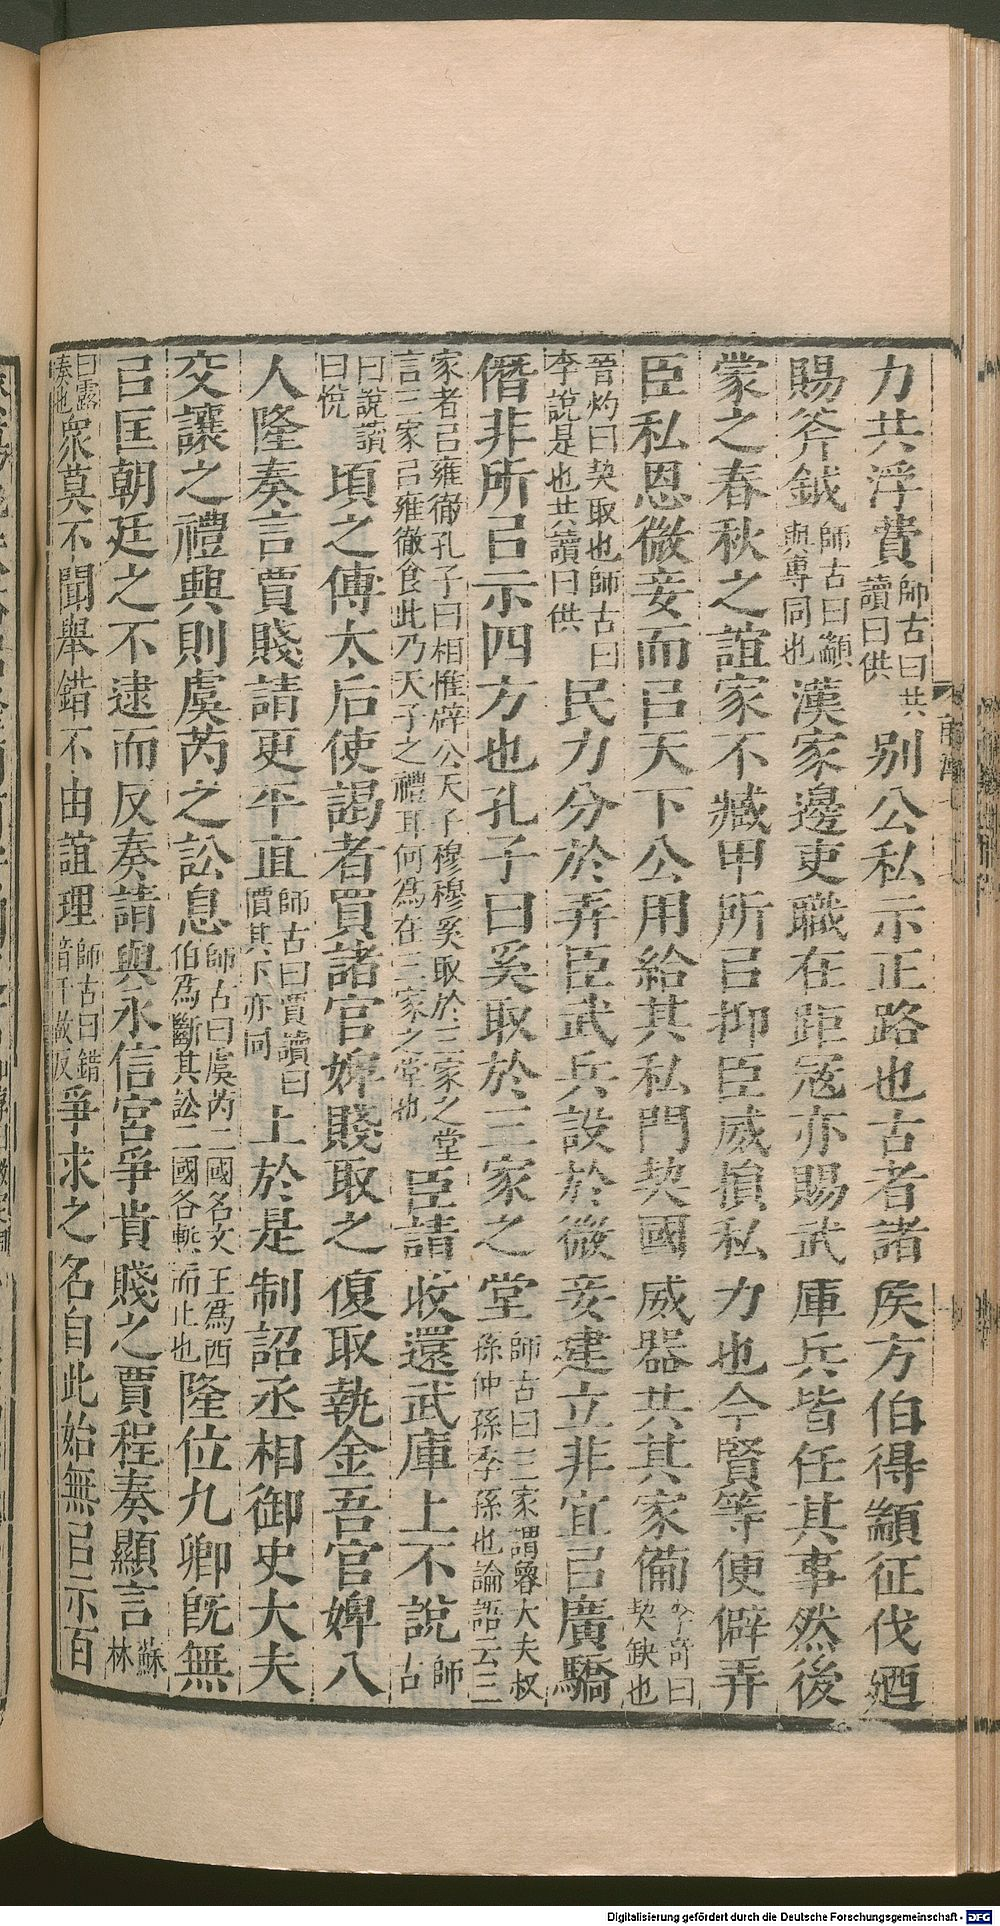 力共浮費師古曰共讀曰供別公私示正路也古者諸矦方伯得顓征伐廼
賜斧鉞師古曰顓與專同也漢家邊吏職在距寇亦賜武庫兵皆任其事然後
蒙之春秋之誼家不臧甲所㠯抑臣威損私力也今賢等便僻弄
臣私恩微妾而㠯天下公用給其私門契國威器共其家備李奇曰契缺也
晉灼曰契取也師古曰李說是也共讀曰供民力分於弄臣武兵設於微妾建立非宜㠯廣驕
僭非所㠯示四方也孔子曰奚取於三家之堂師古曰三家謂魯大夫叔孫仲孫季孫也論語云三
家者㠯雍徹孔子曰相惟辟公天子穆穆奚取於三家之堂言三家㠯雍徹食此乃天子之禮耳何爲在三家之堂也臣請收還武庫上不說師古
曰說讀曰悅頃之傅太后使謁者買諸官婢賤取之復取執金吾官婢八
人隆奏言賈賤請更平直師古曰賈讀曰價其下亦同上於是制詔丞相御史大夫
交讓之禮興則虞芮之訟息師古曰虞芮二國名文王爲西伯爲斷其訟二國各慙而止也隆位九卿旣無
㠯匡朝廷之不逮而反奏請與永信宮爭貴賤之賈程奏顯言蘇林
曰露湊也衆莫不聞舉錯不由誼理師古曰錯音千故反爭求之名自此始無㠯示百
Digitalisierung gefördert durch die Deutsche Forschungsgemeinschaft - DFG